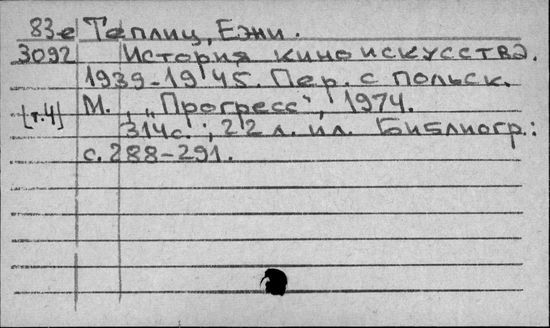 83-е Теплиц, Ежи.
3092 История киноискусства.
1939-1945. Пер. с польск.
[т.4] М., „Прогресс“, 1974.
314с.; 22 л. ил. Библиогр.:
с. 288-291.